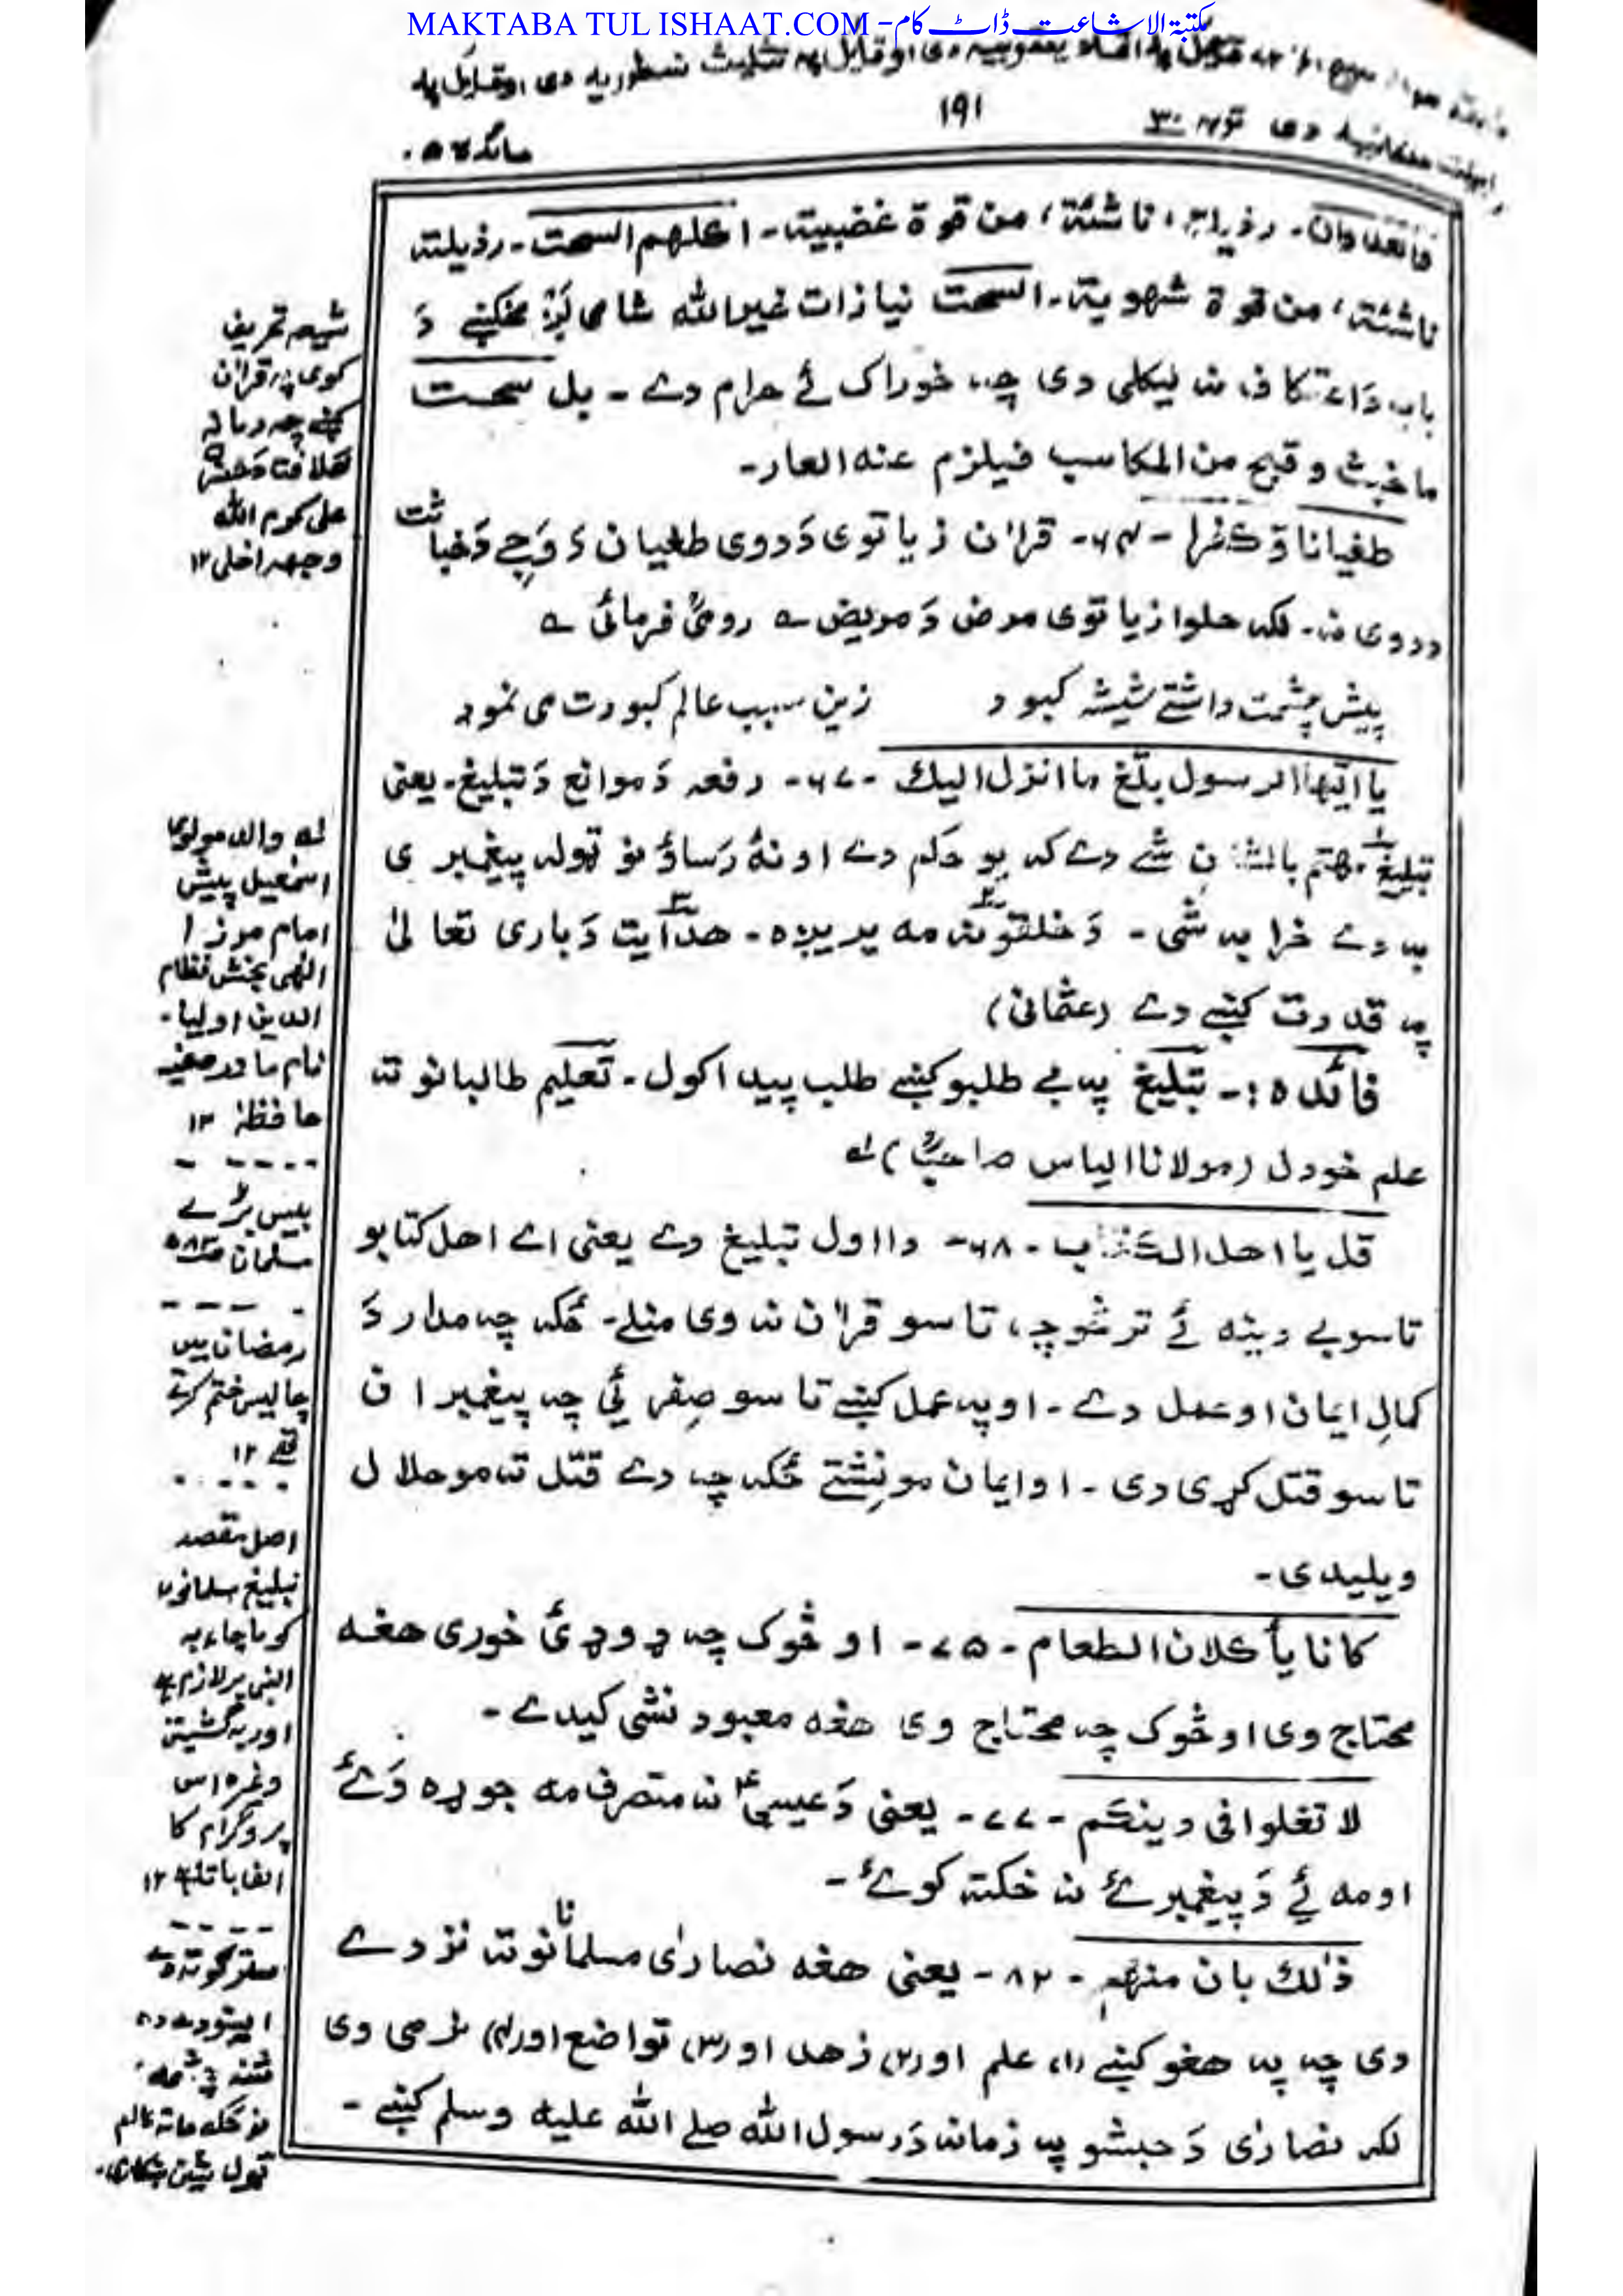 MAKTABA TUL ISHAAT.COM - مکتبۃ الاشاعت ڈاٹ کام
دی اوقایل په تثلیث نسطوریه دی اوقایل په
۱۹۱
مائده
رذیلة، ناشئة، من قوة غضبیة۔ اکلهم السحت۔ رذیلته
ناشئة، من قوة شهویة۔ السحت نیازات غیرالله شامی کښې دَ
باب دَ اعتکاف نه لیکلی دی چه خوراک ئے حرام دے ۔ بل سحت
ما خبث و قبح من المکاسب فیلزم عنه العار۔
طغیانا وّکفرا - ۶۴- قرآن زیاتوی دَدوی طغیان دَ وَجے دَخباثت
ددوی نه۔ لکه حلوا زیاتوی مرض دَمریض ے رومیؒ فرمائی ے
پیش چشمت داشتے شیشه کبود زین سبب عالم کبودت می نمود
یا ایها الرسول بلّغ ما انزل الیك -۶۷- دفعہ دَموانع دَتبلیغ۔ یعنی
تبلیغ مهتم بالشان شے دے که یو حکم دے اونۀ رَساوؤ نو ټوله پیغمبری
به دے خرابه شی ۔ دَخلقونه مه یریږه۔ هدآیت دَباری تعالیٰ
په قدرت کښے دے (عثمانی)
فائده :- تبلیغ په بے طلبو کښے طلب پیدا کول۔ تعلیم طالبانو ته
علم خودل (مولانا الیاس صاحبؒ) لے
قل یا اهل الکتٰب -۶۸- دا اول تبلیغ دے یعنی اے اهل کتابو
تاسو بے دینه ئے ترڅو چه، تاسو قرآن نه وی منلے۔ ځکه چه مدار دَ
کمالِ ایمان او عمل دے ۔ او په عمل کښے تاسو صِفر ئی چه پیغمبران
تاسو قتل کړی دی ۔ او ایمان مو نِشتے ځکه چه دے قتل ته مو حلال
ویلیدی۔
کانا یأکلان الطعام -۷۵- او څوک چه ډوډئ خوری هغه
محتاج وی او څوک چه محتاج وی هغه معبود نشی کیدے ۔
لا تغلوا فی دینکم -۷۷- یعنی دَعیسیٰؑ نه متصرف مه جوړه وَئے
او مه ئے دَ پیغمبرئے نه ښکته کوئے ۔
ذٰلك بان منهم -۸۲- یعنی هغه نصارٰی مسلمانانو ته نزدے
دی چه په هغو کښے (۱) علم او (۲) زهد او (۳) تواضع او (۴) نرمی وی
لکه نصارٰی دَحبشو په زمانه دَرسول الله صلے الله علیه وسلم کښے ۔
شیعه تحریف
کوی په قرآن
علی کرم الله
لے والد مولوی
اسمٰعیل پیش
امام مرزا
الٰهی بخش نظام
الدین اولیا۔
نام مادر صفیه
حافظه ۱۲
بیس بڑے
مسلمان
رمضان میں
چالیس ختم کرتے
تھے ۱۲
اصل مقصد
تبلیغ مسلمانوں
کو ماجاء به
النبی پر لازم ہے
اور یہ گشتیں
وغیرہ اس
پروگرام کا
الف با تا ہے ۱۲